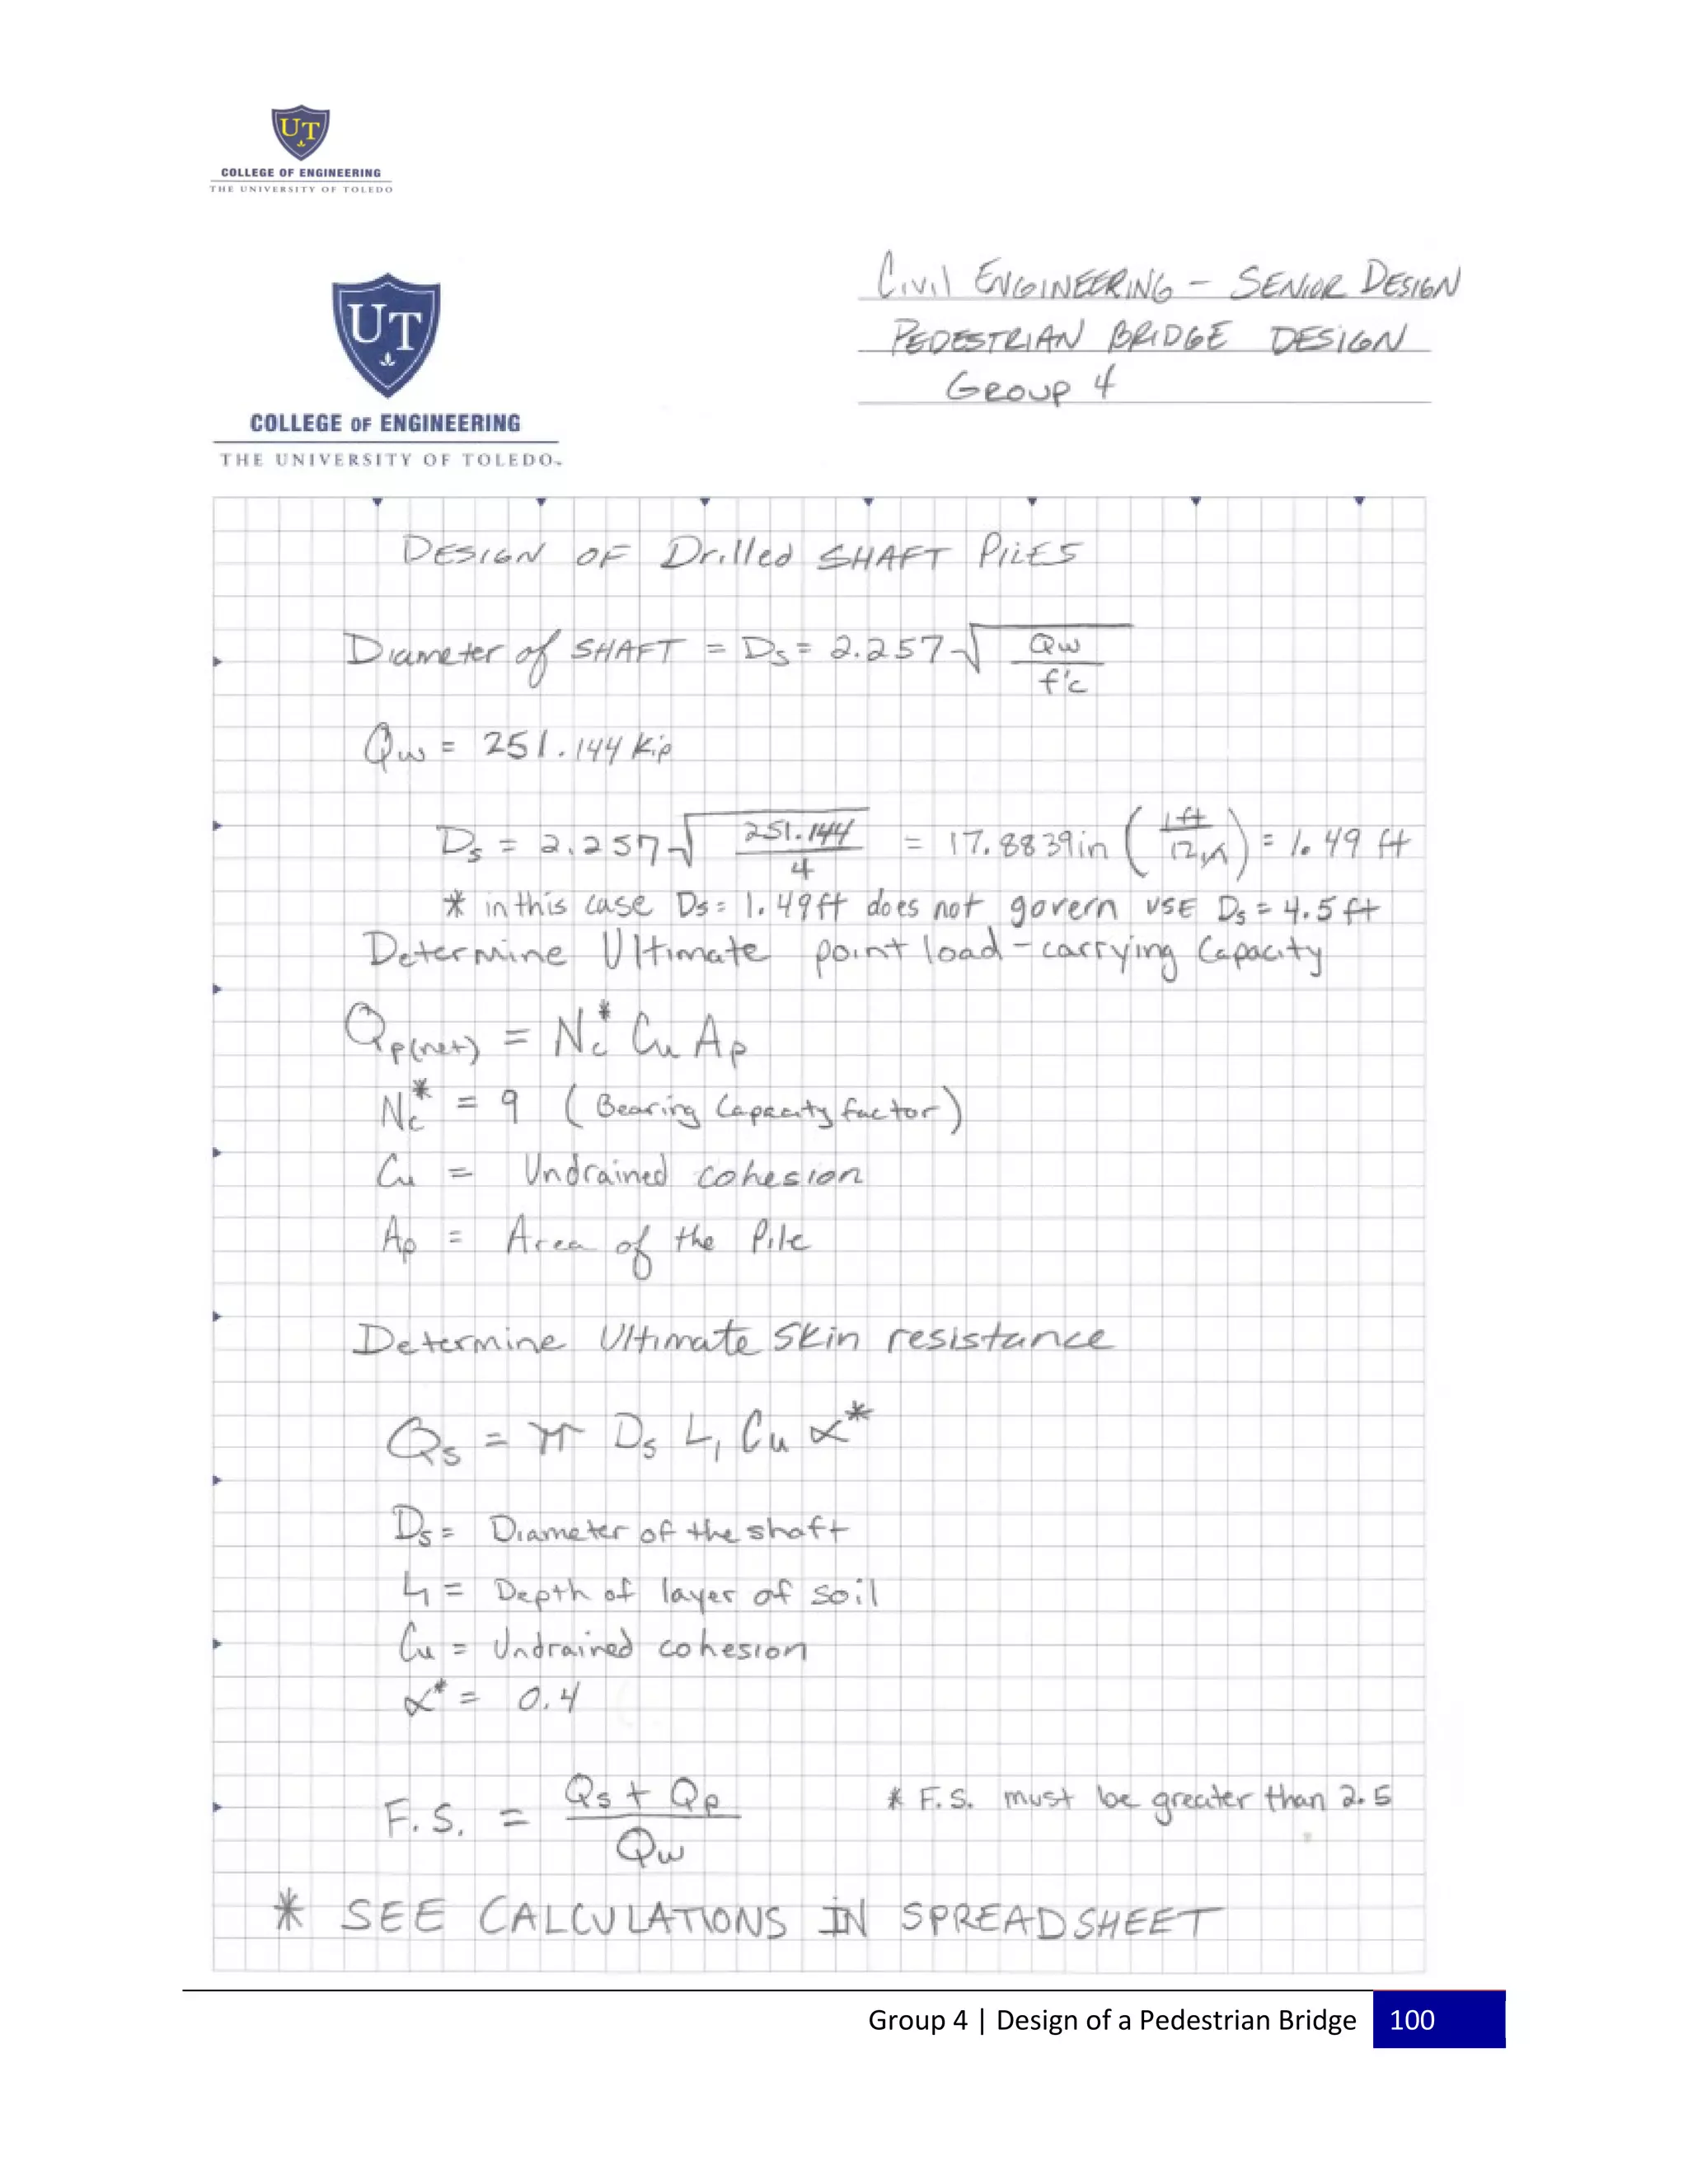 UT
COLLEGE OF ENGINEERING
THE UNIVERSITY OF TOLEDO
Civil ENGINEERING - SENIOR DESIGN
PEDESTRIAN BRIDGE DESIGN
GROUP 4
UT
COLLEGE OF ENGINEERING
THE UNIVERSITY OF TOLEDO
DESIGN OF Drilled SHAFT PILES
Diameter of SHAFT = Ds = 2.257 √(Qw / f'c)
Qw = 251.144 kip
Ds = 2.257 √(251.144 / 4) = 17.8839in (1ft / 12in) = 1.49 ft
* in this case Ds = 1.49ft does not govern USE Ds = 4.5 ft
Determine Ultimate point load-carrying Capacity
Qp(net) = Nc* Cu Ap
Nc* = 9 (Bearing Capacity factor)
Cu = Undrained cohesion
Ap = Area of the Pile
Determine Ultimate Skin resistance
Qs = π Ds L1 Cu α*
Ds = Diameter of the shaft
L1 = Depth of layer of soil
Cu = Undrained cohesion
α* = 0.4
F.S. = (Qs + Qp) / Qw * F.S. must be greater than 2.5
* SEE CALCULATIONS IN SPREADSHEET
Group 4 | Design of a Pedestrian Bridge 100